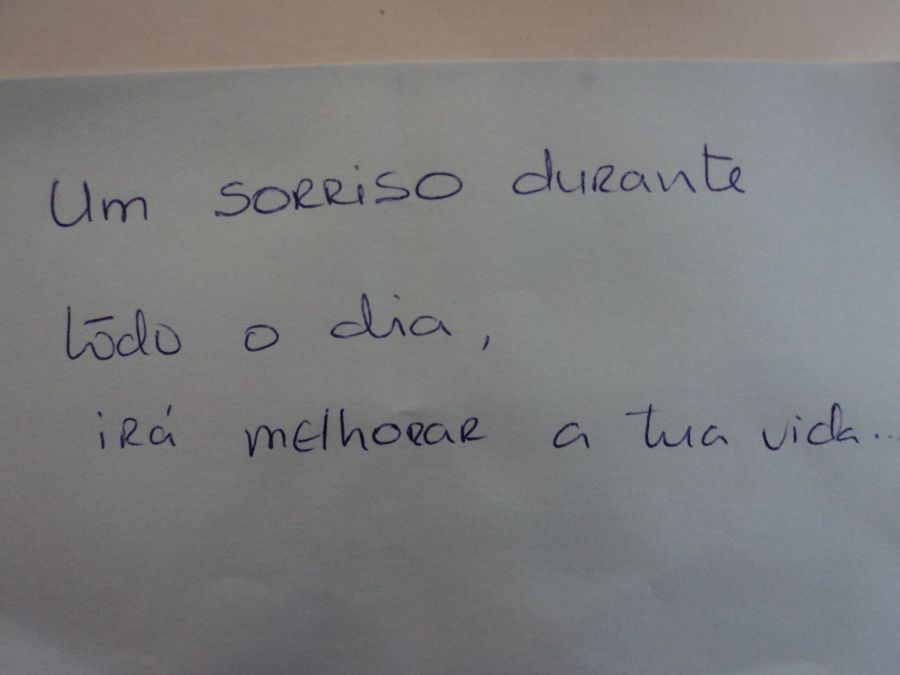 Um sorriso durante
tōdo o dia,
irá melhorar a tua vida...